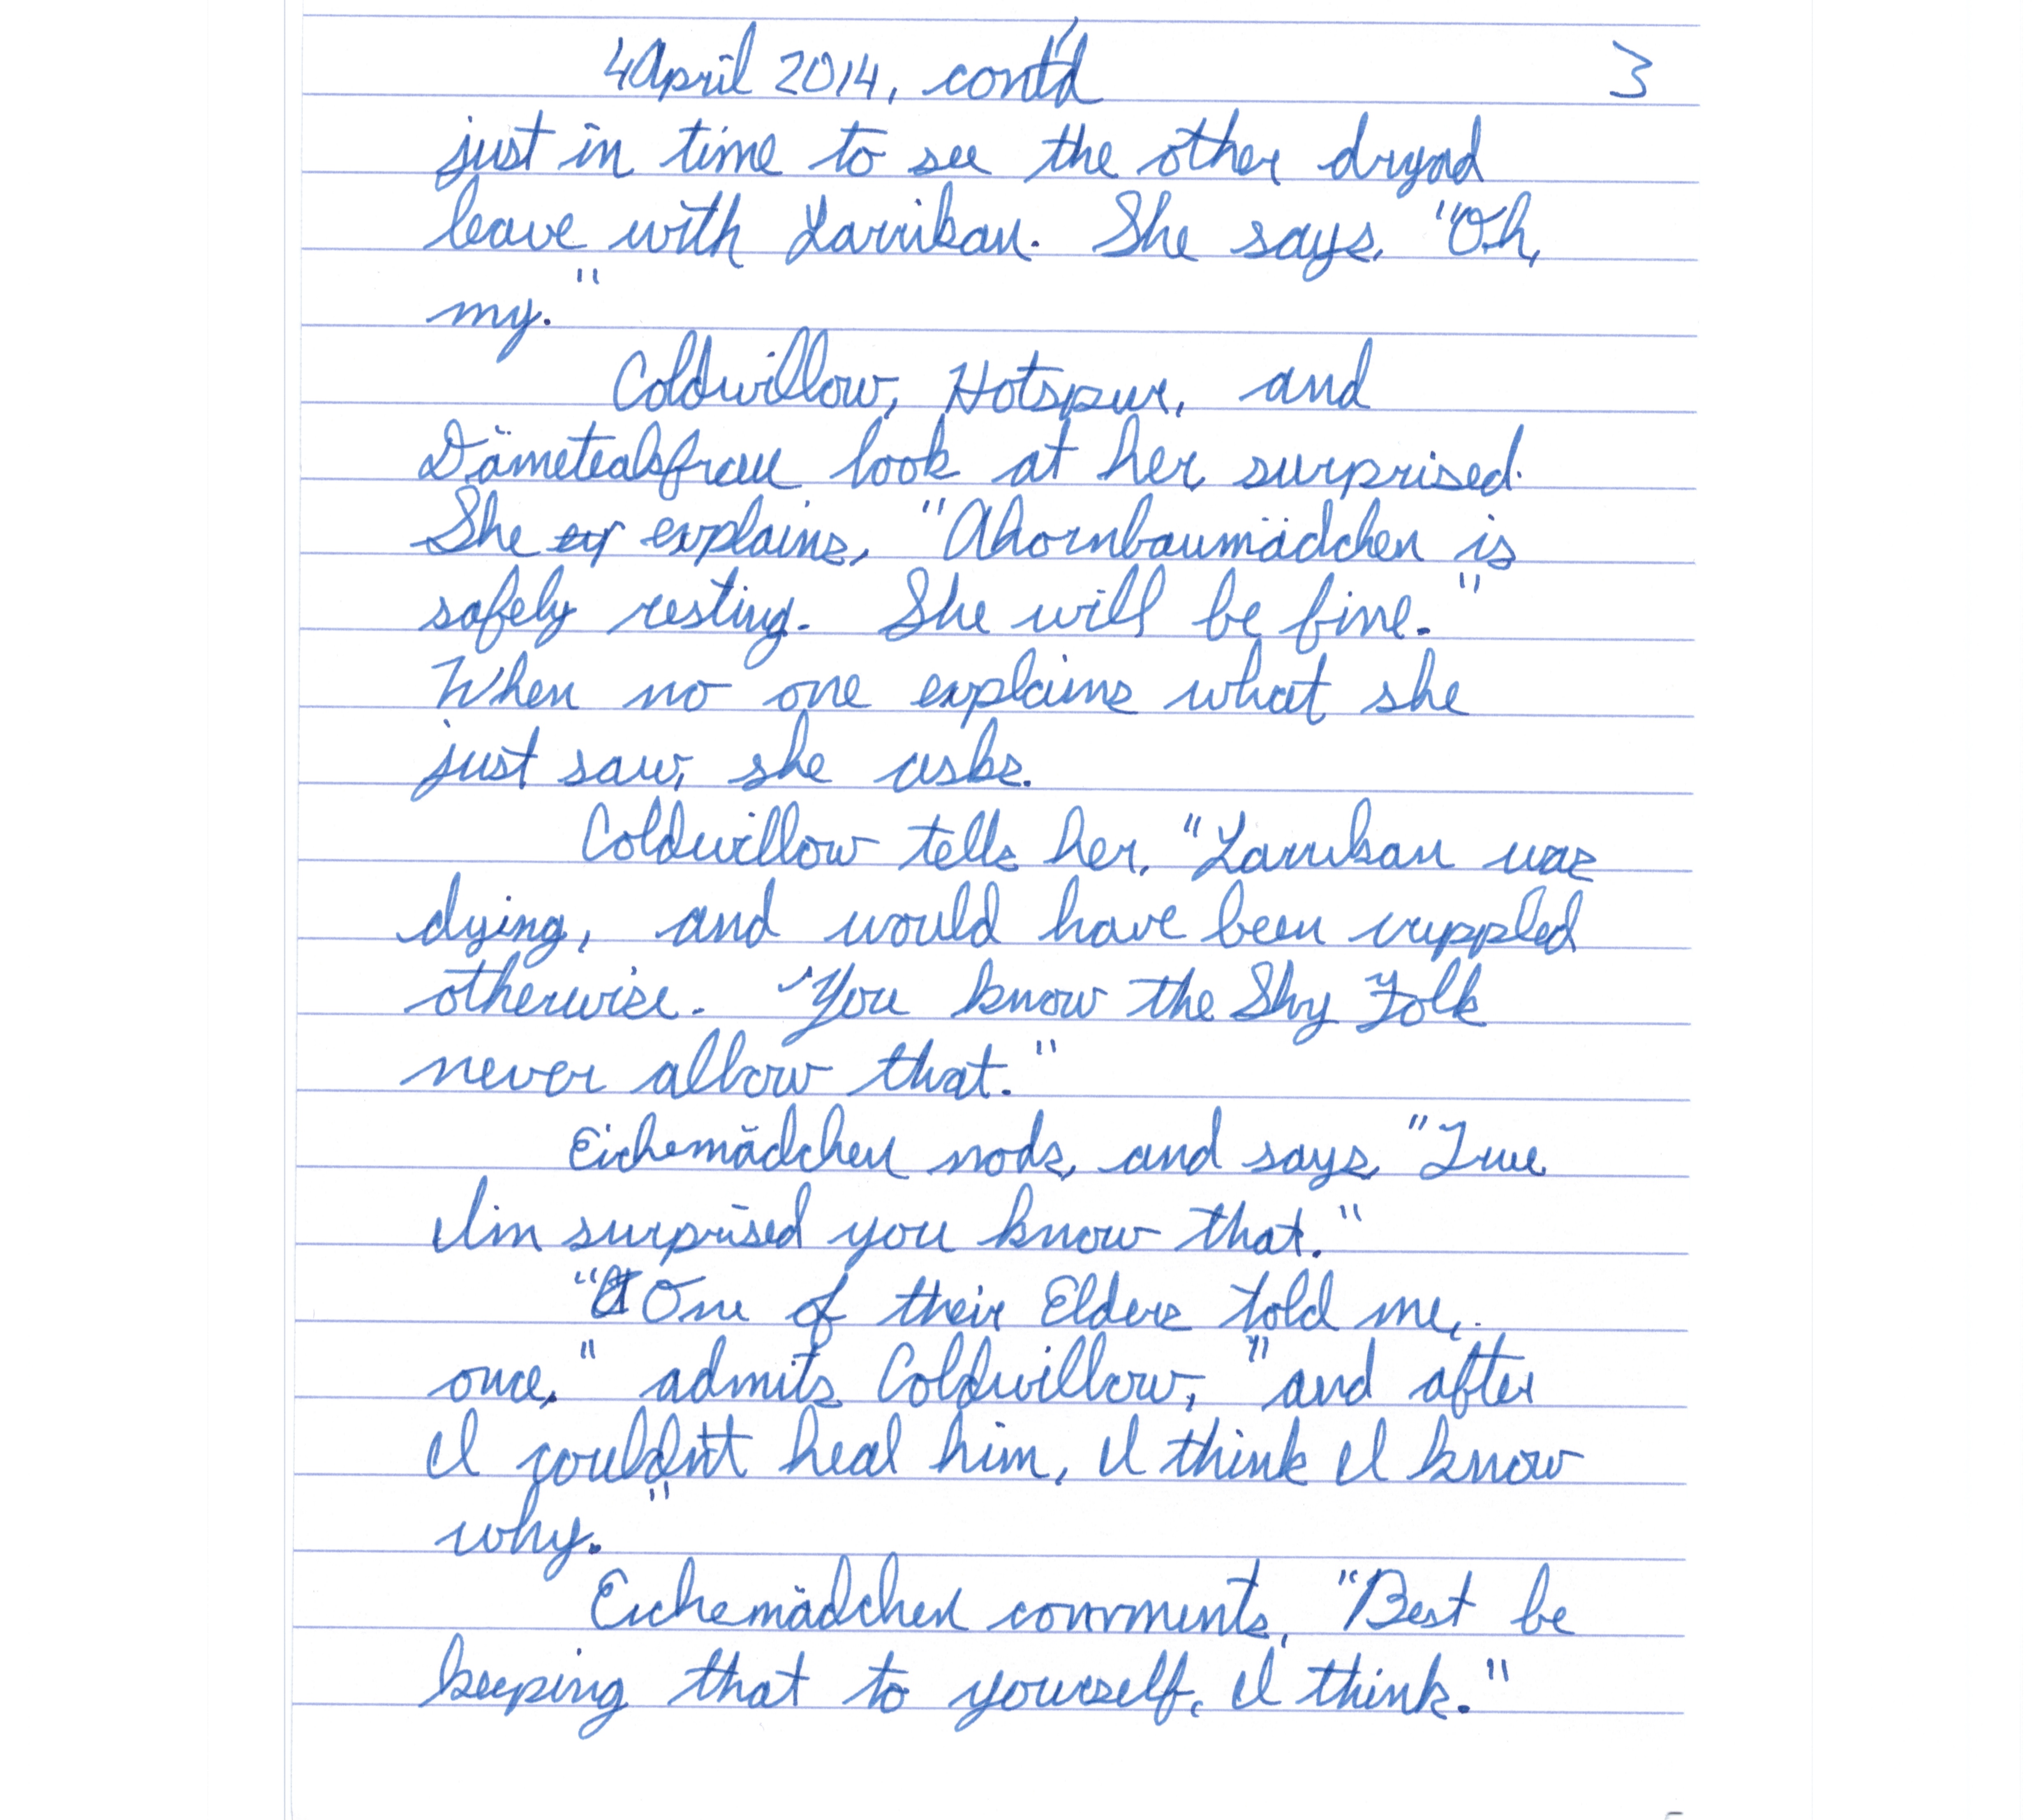 4 April 2014, cont'd 3
just in time to see the other dryad
leave with Larrikan. She says, "Oh,
my."
Coldwillow, Hotspur, and
Dämetealsfrau look at her, surprised.
She ex explains, "Ahornbaumädchen is
safely resting. She will be fine."
When no one explains what she
just saw, she asks.
Coldwillow tells her, "Larrikan was
dying, and would have been crippled
otherwise. You know the Shy Folk
never allow that."
Eichemädchen nods, and says, "True
I'm surprised you know that."
"One of their Elders told me,
once," admits Coldwillow, "and after
I couldn't heal him, I think I know
why."
Eichemädchen comments, "Best be
keeping that to yourself, I think."